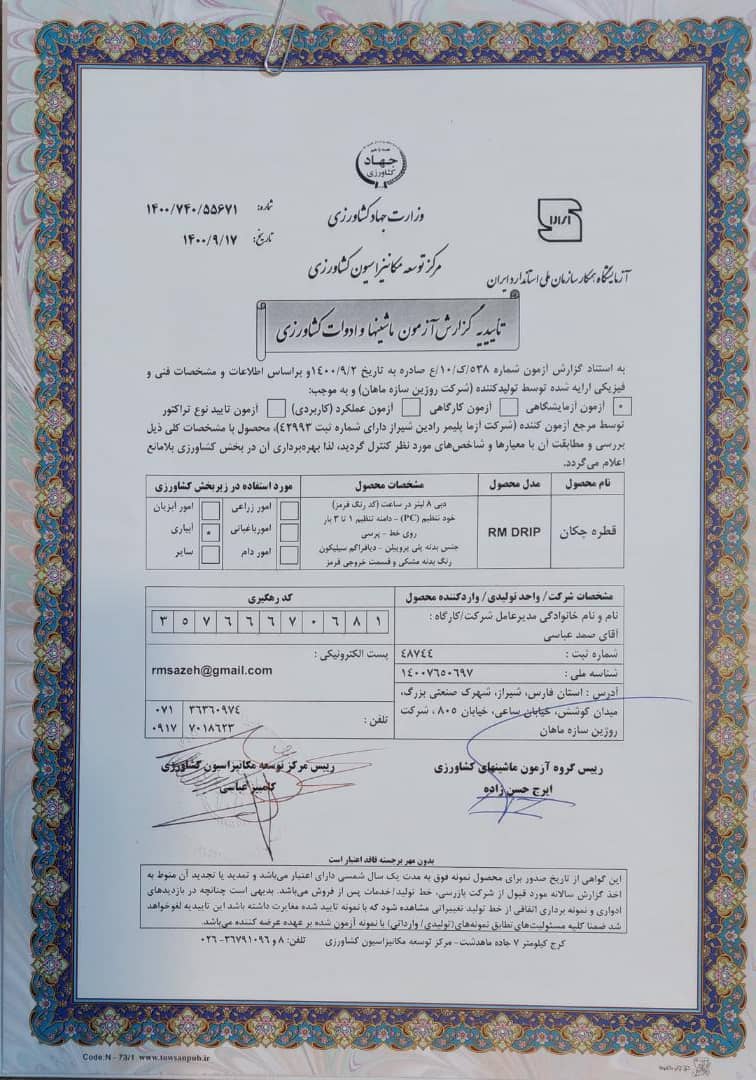 جهاد
کشاورزی
شماره: ۱۴۰۰/۷۴۰/۵۵۶۷۱
تاریخ: ۱۴۰۰/۹/۱۷
وزارت جهاد کشاورزی
مرکز توسعه مکانیزاسیون کشاورزی
آزمایشگاه همکار سازمان ملی استاندارد ایران
تاییدیه گزارش آزمون ماشینها و ادوات کشاورزی
به استناد گزارش آزمون شماره ۵۳۸/ک/۱۰/ع صادره به تاریخ ۱۴۰۰/۹/۲ و براساس اطلاعات و مشخصات فنی و
فیزیکی ارایه شده توسط تولیدکننده (شرکت روژین سازه ماهان) و به موجب:
آزمون آزمایشگاهی آزمون کارگاهی آزمون عملکرد (کاربردی) آزمون تایید نوع تراکتور
توسط مرجع آزمون کننده (شرکت آزما پلیمر رادین شیراز دارای شماره ثبت ۴۲۹۹۳)، محصول با مشخصات کلی ذیل
بررسی و مطابقت آن با معیارها و شاخص‌های مورد نظر کنترل گردید، لذا بهره‌برداری آن در بخش کشاورزی بلامانع
اعلام می‌گردد.
نام محصول مدل محصول مشخصات محصول مورد استفاده در زیربخش کشاورزی
قطره چکان
RM DRIP
دبی ۸ لیتر در ساعت (کد رنگ قرمز)
خود تنظیم (PC) - دامنه تنظیم ۱ تا ۳ بار
روی خط - پرسی
جنس بدنه پلی پروپیلن - دیافراگم سیلیکون
رنگ بدنه مشکی و قسمت خروجی قرمز
امور زراعی امور آبزیان
امورباغبانی آبیاری
امور دام سایر
مشخصات شرکت/ واحد تولیدی/ واردکننده محصول
کد رهگیری
نام و نام خانوادگی مدیرعامل شرکت/کارگاه :
آقای صمد عباسی
۳ ۵ ۷ ۶ ۶ ۷ ۰ ۶ ۸ ۱
شماره ثبت : ۴۸۷۴۴
شناسه ملی : ۱۴۰۰۷۶۵۰۶۹۷
پست الکترونیکی :
rmsazeh@gmail.com
آدرس : استان فارس، شیراز، شهرک صنعتی بزرگ،
میدان کوشش، خیابان ساعی، خیابان ۸۰۵ ، شرکت
روژین سازه ماهان
تلفن :
۰۷۱ ۳۶۳۶۰۹۷۴
۰۹۱۷ ۷۰۱۸۶۲۳
رییس گروه آزمون ماشینهای کشاورزی
ایرج حسن زاده
رییس مرکز توسعه مکانیزاسیون کشاورزی
کامبیز عباسی
بدون مهر برجسته فاقد اعتبار است
این گواهی از تاریخ صدور برای محصول نمونه فوق به مدت یک سال شمسی دارای اعتبار می‌باشد و تمدید یا تجدید آن منوط به
اخذ گزارش سالانه مورد قبول از شرکت بازرسی، خط تولید/خدمات پس از فروش می‌باشد. بدیهی است چنانچه در بازدیدهای
ادواری و نمونه برداری اتفاقی از خط تولید تغییراتی مشاهده شود که با نمونه تایید شده مغایرت داشته باشد این تاییدیه لغو خواهد
شد ضمنا کلیه مسئولیت‌های تطابق نمونه‌های(تولیدی/ وارداتی) با نمونه آزمون شده بر عهده عرضه کننده می‌باشد.
کرج کیلومتر ۷ جاده ماهدشت- مرکز توسعه مکانیزاسیون کشاورزی تلفن: ۸ و ۳۶۷۹۱۰۹۶-۰۲۶
Code:N - 73/1 www.towsanpub.ir